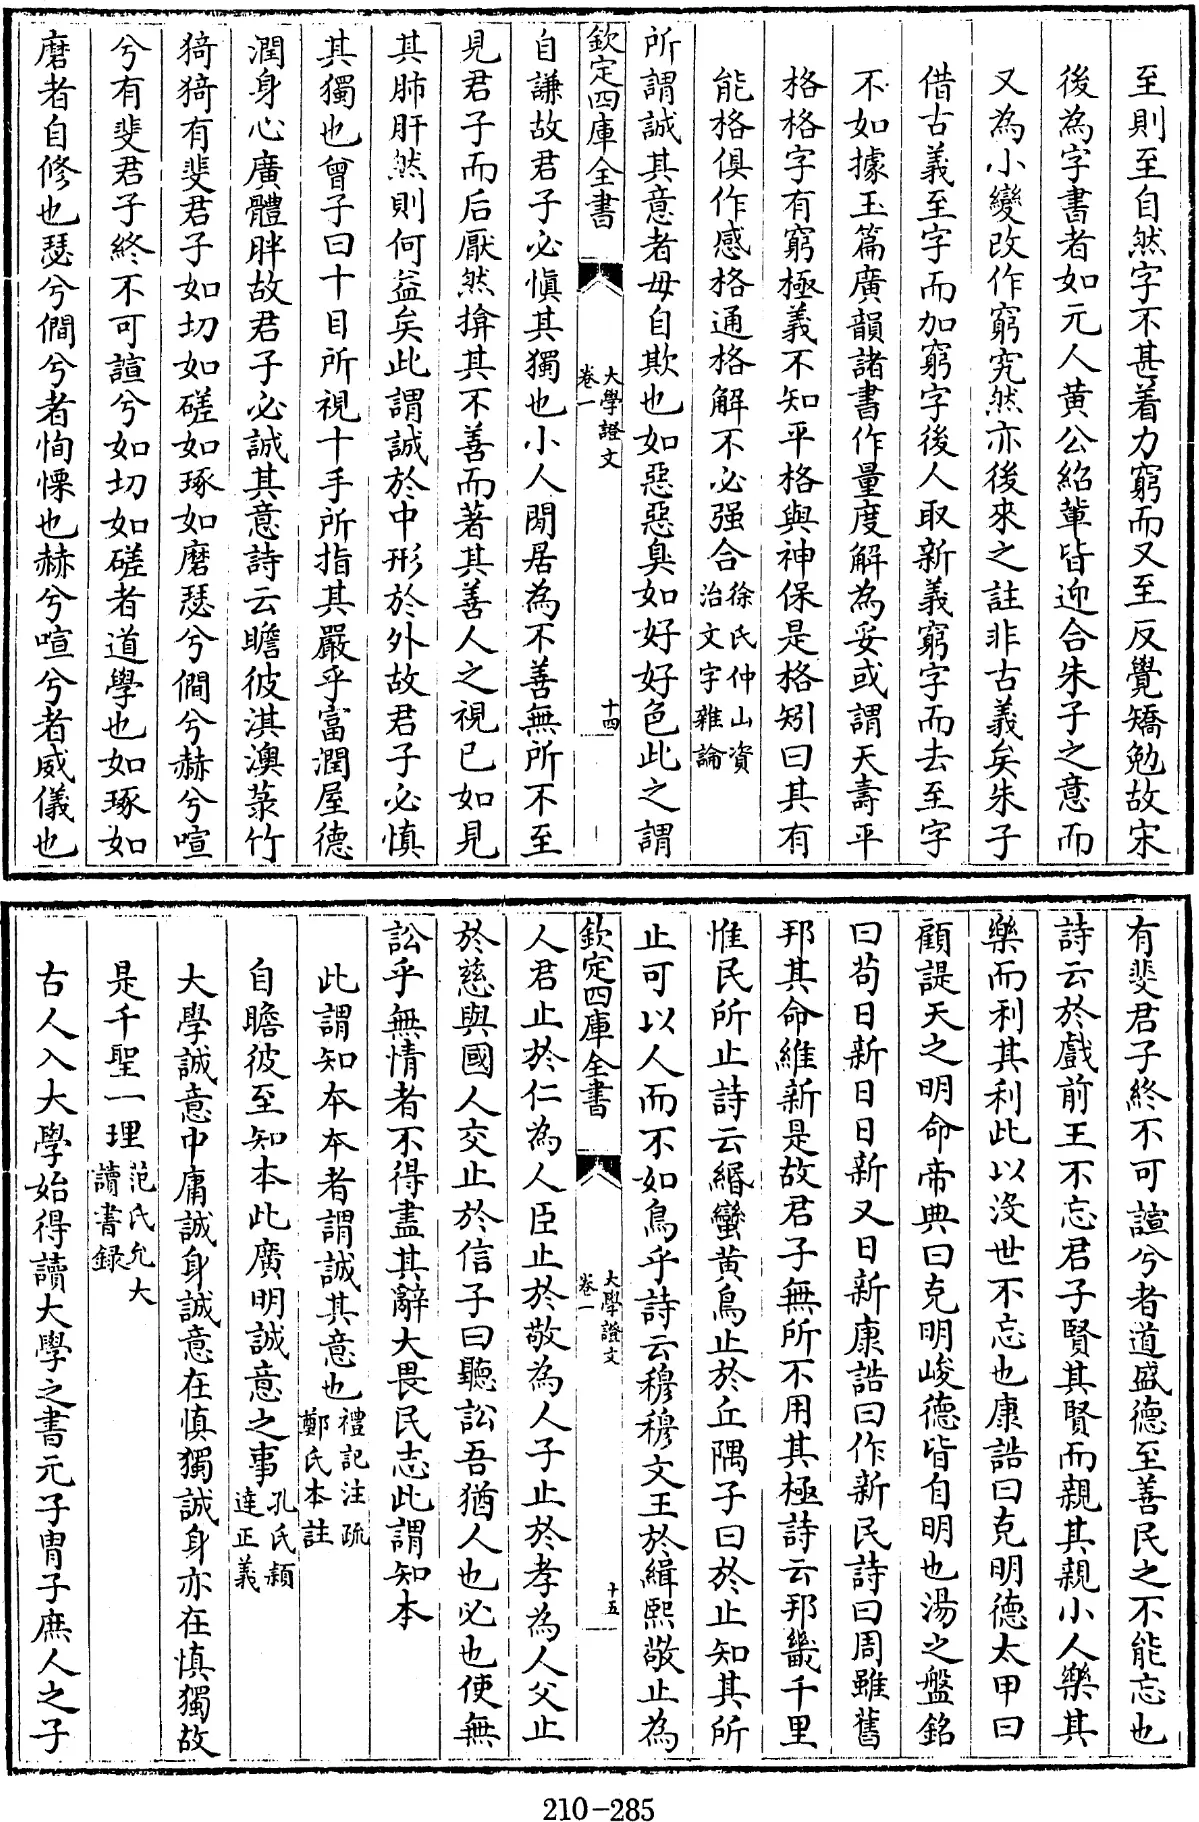 至則至自然字不甚着力窮而又至反覺矯勉故宋
後為字書者如元人黄公紹輩皆迎合朱子之意而
又為小變改作窮究然亦後來之註非古義矣朱子
借古義至字而加窮字後人取新義窮字而去至字
不如據玉篇廣韻諸書作量度解為妥或謂天壽平
格格字有窮極義不知平格與神保是格矧曰其有
能格俱作感格通格解不必强合徐氏仲山資治文字雜論
所謂誠其意者毋自欺也如惡惡臭如好好色此之謂
欽定四庫全書 大學證文 卷一 十四
自謙故君子必慎其獨也小人閒居為不善無所不至
見君子而后厭然揜其不善而著其善人之視已如見
其肺肝然則何益矣此謂誠於中形於外故君子必慎
其獨也曾子曰十目所視十手所指其嚴乎富潤屋德
潤身心廣體胖故君子必誠其意詩云瞻彼淇澳菉竹
猗猗有斐君子如切如磋如琢如磨瑟兮僩兮赫兮喧
兮有斐君子終不可諠兮如切如磋者道學也如琢如
磨者自修也瑟兮僩兮者恂慄也赫兮喧兮者威儀也
有斐君子終不可諠兮者道盛德至善民之不能忘也
詩云於戲前王不忘君子賢其賢而親其親小人樂其
樂而利其利此以沒世不忘也康誥曰克明德太甲曰
顧諟天之明命帝典曰克明峻德皆自明也湯之盤銘
曰苟日新日日新又日新康誥曰作新民詩曰周雖舊
邦其命維新是故君子無所不用其極詩云邦畿千里
惟民所止詩云緡蠻黄鳥止於丘隅子曰於止知其所
止可以人而不如鳥乎詩云穆穆文王於緝熙敬止為
欽定四庫全書 大學證文 卷一 十五
人君止於仁為人臣止於敬為人子止於孝為人父止
於慈與國人交止於信子曰聽訟吾猶人也必也使無
訟乎無情者不得盡其辭大畏民志此謂知本
此謂知本本者謂誠其意也禮記注疏鄭氏本註
自瞻彼至知本此廣明誠意之事孔氏穎達正義
大學誠意中庸誠身誠意在慎獨誠身亦在慎獨故
是千聖一理范氏允大讀書録
古人入大學始得讀大學之書元子胄子庶人之子
210-285